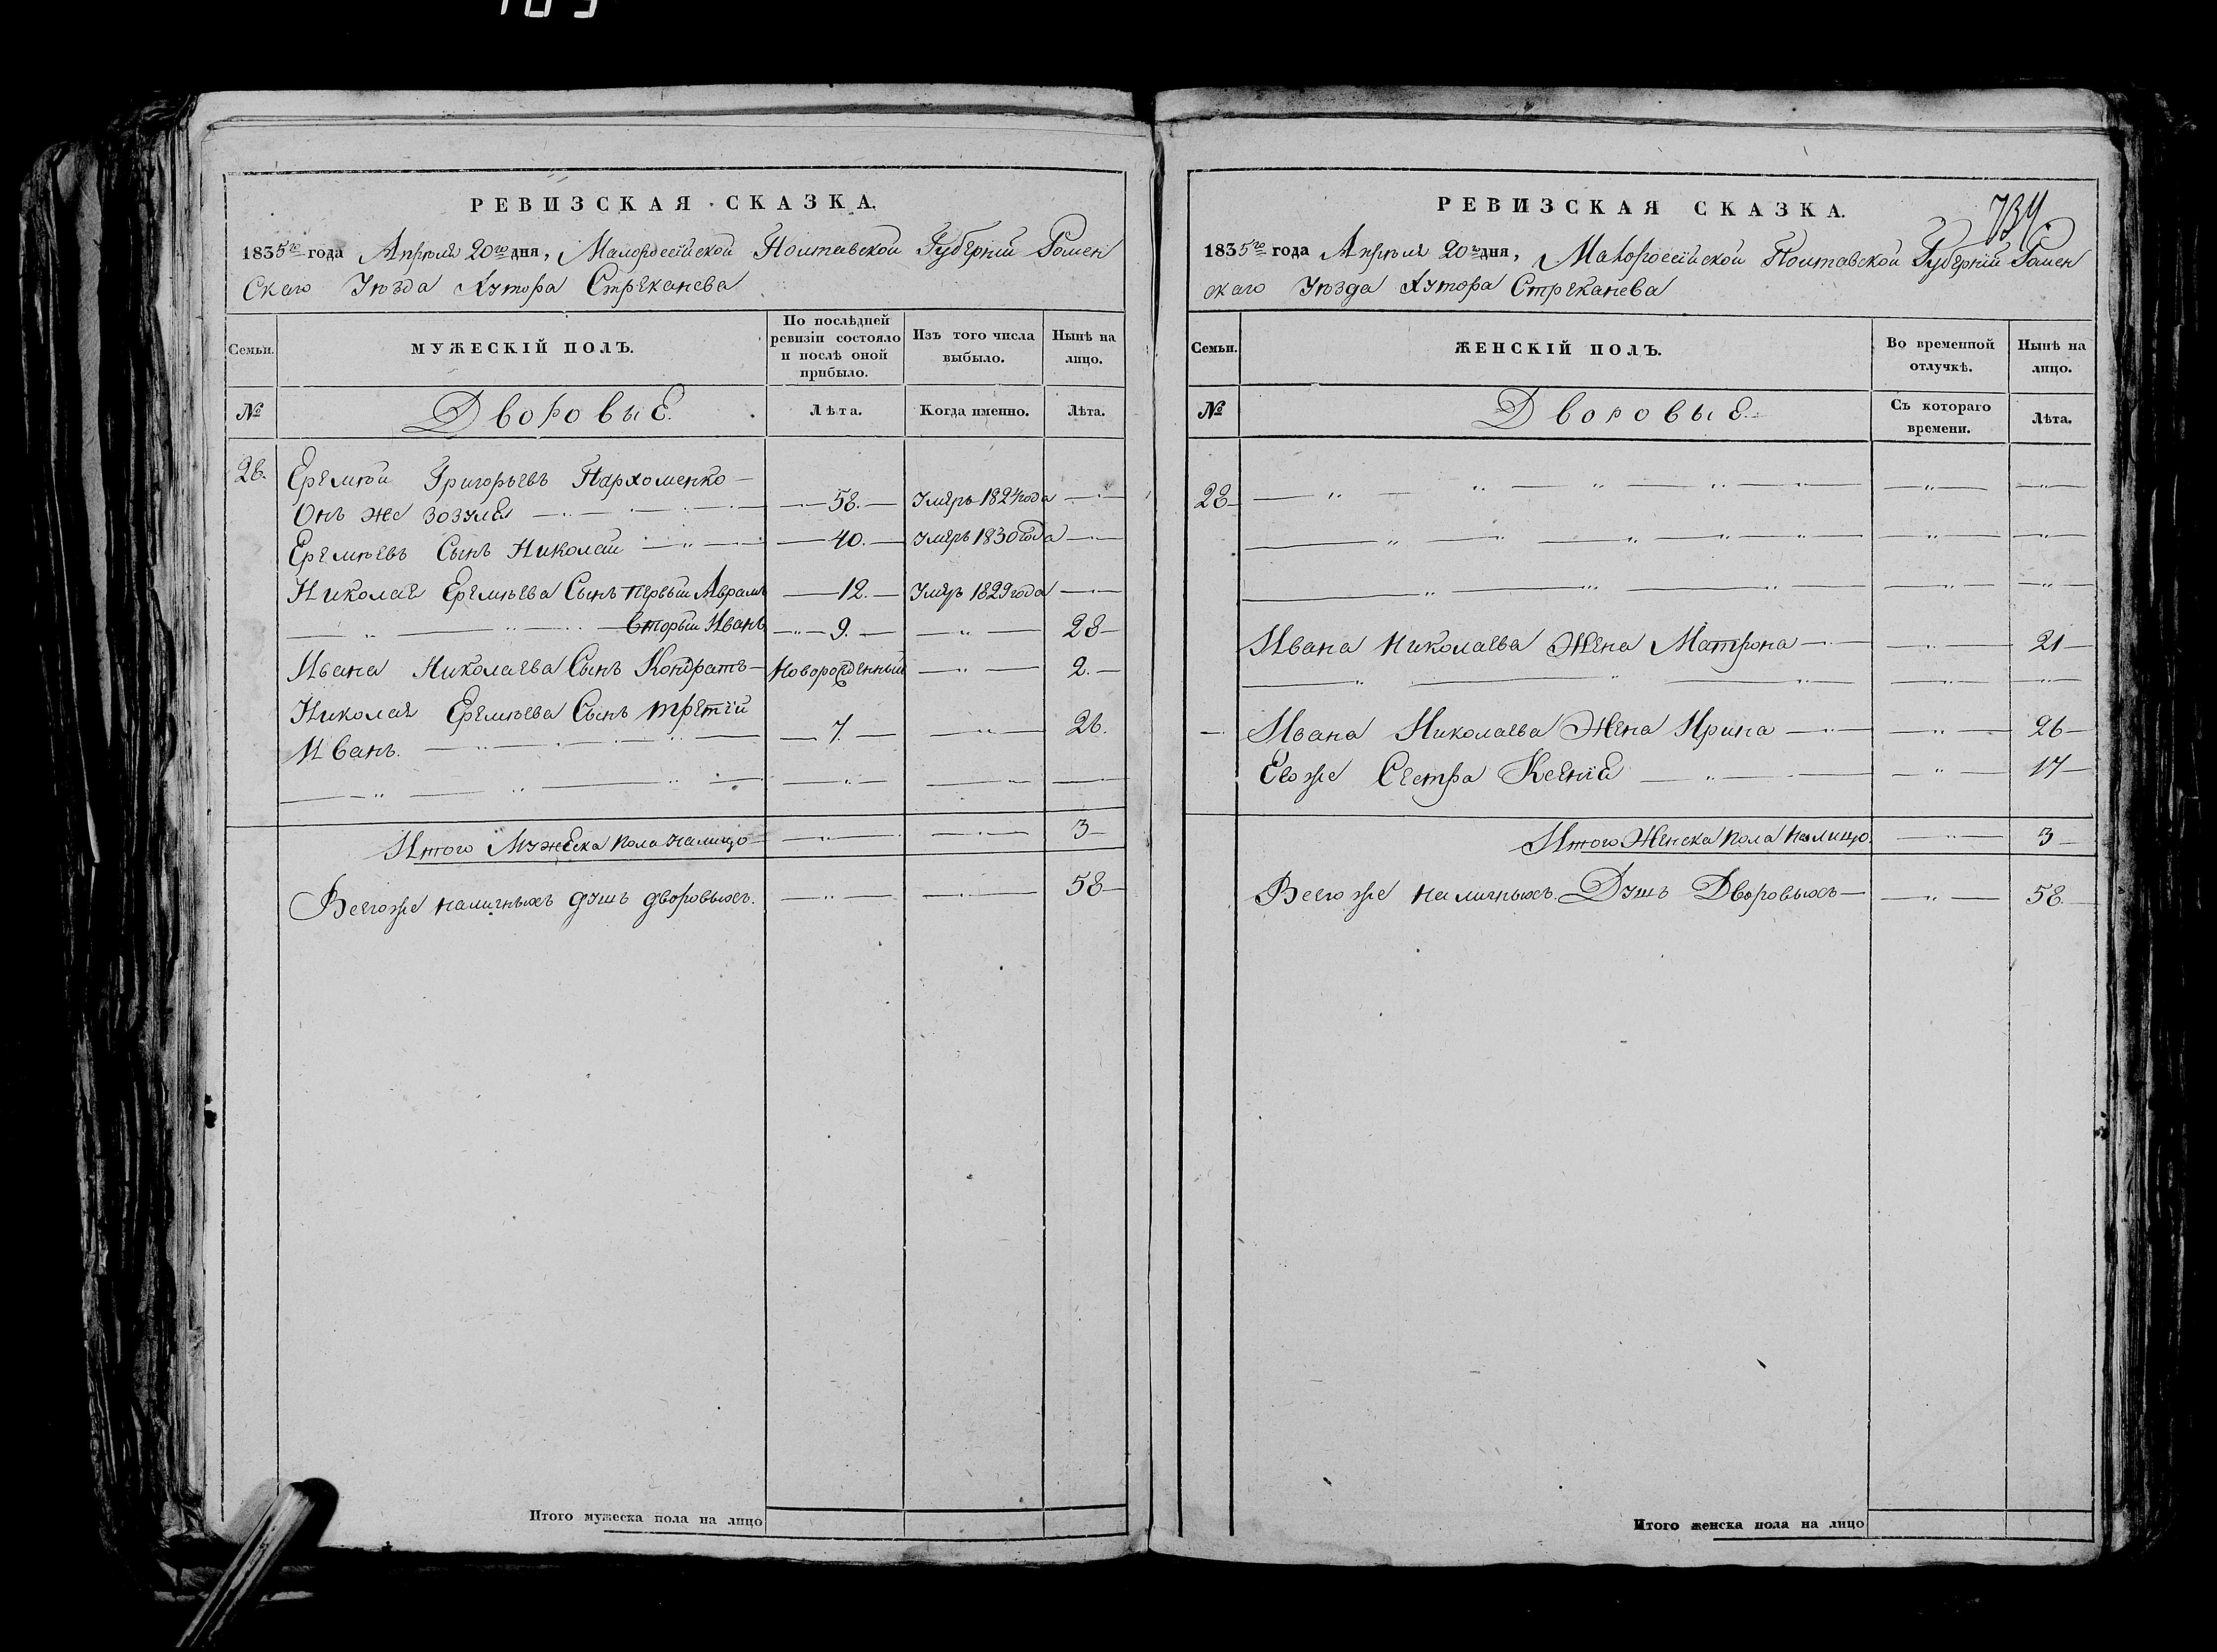 РЕВИЗСКАЯ СКАЗКА.
1835го года Апреля 20го дня, Малороссійской Полтавской Губерніи Ромен
скаго Уѣзда Хутора Стреканева
Семьи.
МУЖЕСКІЙ ПОЛЪ.
По послѣдней ревизіи состояло и послѣ оной прибыло.
Изъ того числа выбыло.
Нынѣ на лицо.
№
Дворовые.
Лѣта.
Когда именно.
Лѣта.
28.
Еремѣй Григорьевъ Пархоменко
Онъ же Зозуля 58. Умеръ 1824 года
Еремѣевъ Сынъ Николай 40. Умеръ 1830 года
Николая Еремѣева Сынъ первый Аврамъ 12. Умеръ 1829 года
вторый Иванъ 9. 28
Ивана Николаева Сынъ Кондратъ Новорожденный 2.
Николая Еремѣева Сынъ третій
Иванъ. 7. 26.
Итого Мужеска пола налицо 3
Всего же наличныхъ душъ дворовыхъ. 58
Итого мужеска пола на лицо
РЕВИЗСКАЯ СКАЗКА.
734.
1835го года Апреля 20го дня, Малороссійской Полтавской Губерніи Ромен
скаго Уѣзда Хутора Стреканева
Семьи.
ЖЕНСКІЙ ПОЛЪ.
Во временной отлучкѣ.
Нынѣ на лицо.
№
Дворовые.
Съ котораго времени.
Лѣта.
28
Ивана Николаева Жена Матрона 21
Ивана Николаева Жена Ирина 26
Его же Сестра Ксенія 17
Итого Женска пола налицо. 3
Всего же наличныхъ Душъ Дворовыхъ 58.
Итого женска пола на лицо